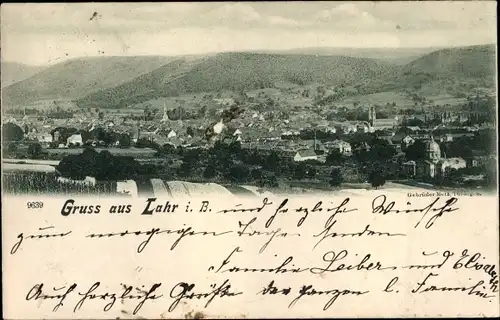 Gebrüder Metz, Tübingen
9639 Gruss aus Lahr i. B. und herzliche Wünsche
zum morgigen Tage, senden
Familie Leiber und Elsa
Auch herzliche Grüße der ganzen l. Familie